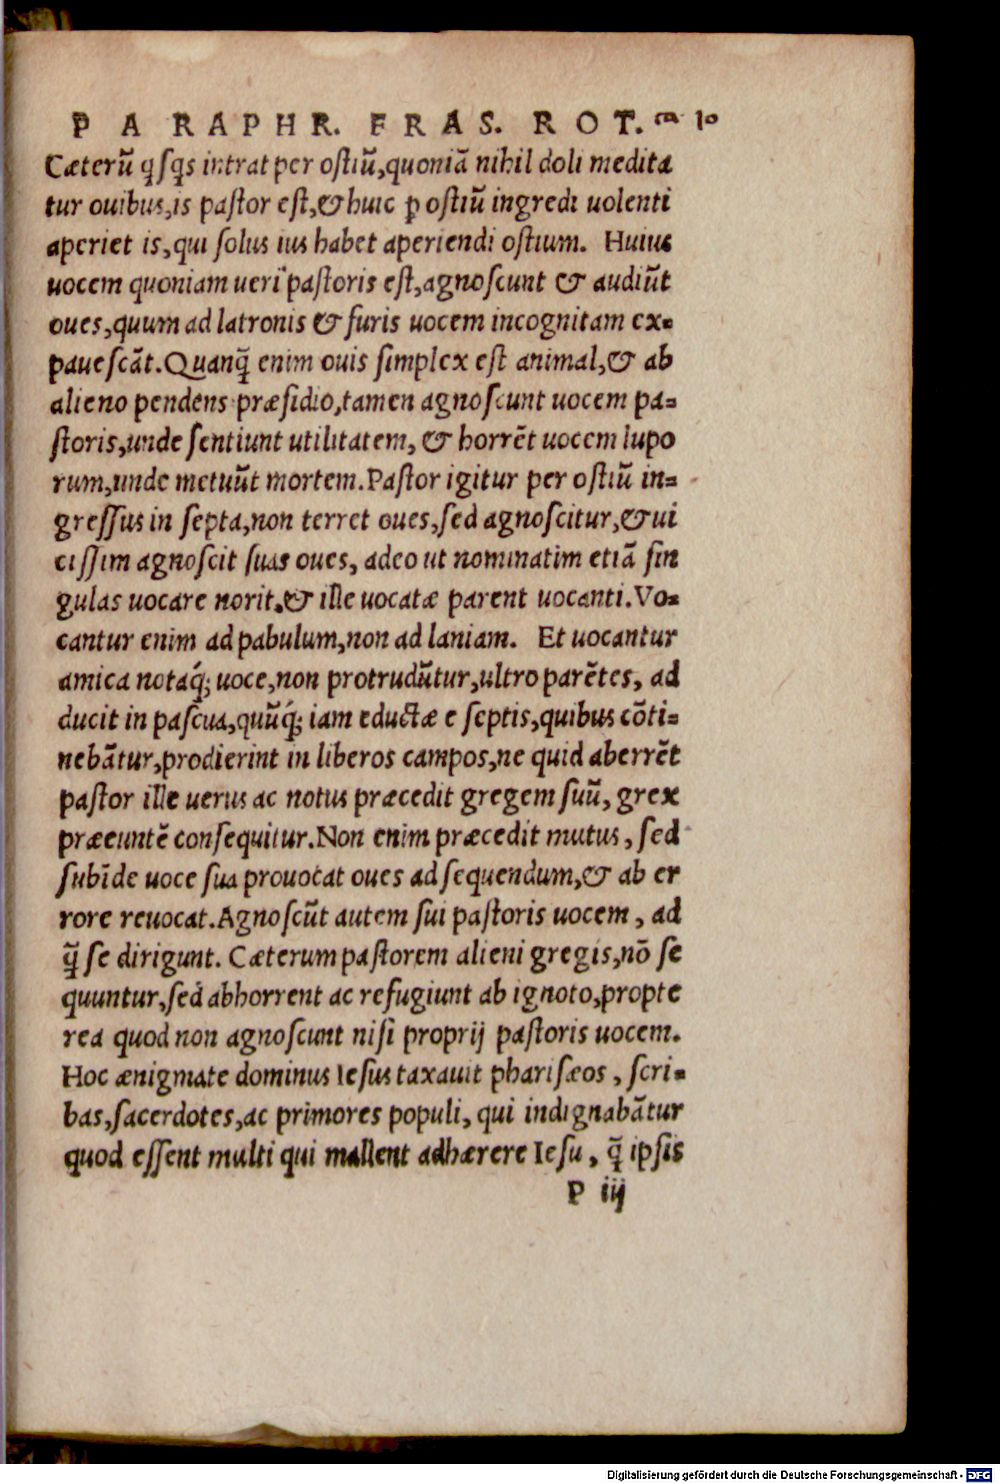 PARAPHR. ERAS. ROT.
Cæterũ q̃sq̃s intrat per ostiũ,quoniã nihil doli medita
tur ouibus,is pastor est,&huic ꝑ ostiũ ingredi uolenti
aperiet is,qui solus ius habet aperiendi ostium. Huius
uocem quoniam ueri pastoris est,agnoscunt & audiũt
oues,quum ad latronis & furis uocem incognitam ex-
pauescãt.Quanq̃ enim ouis simplex est animal,& ab
alieno pendens præsidio,tamen agnoscunt uocem pa-
storis,unde sentiunt utilitatem, & horrẽt uocem lupo
rum,unde metuũt mortem.Pastor igitur per ostiũ in-
gressus in septa,non terret oues,sed agnoscitur,&ui
cissim agnoscit suas oues, adeo ut nominatim etiã sin
gulas uocare norit.& ille uocatæ parent uocanti.Vo-
cantur enim ad pabulum,non ad laniam. Et uocantur
amica notaq́; uoce,non protrudũtur,ultro parẽtes, ad
ducit in pascua,quũq́; iam eductæ e septis,quibus cõti-
nebãtur,prodierint in liberos campos,ne quid aberrẽt
pastor ille uerus ac notus præcedit gregem suũ, grex
præeuntẽ consequitur.Non enim præcedit mutus, sed
subĩde uoce sua prouocat oues ad sequendum,& ab er
rore reuocat.Agnoscũt autem sui pastoris uocem, ad
q̃ se dirigunt. Cæterum pastorem alieni gregis,nõ se
quuntur,sed abhorrent ac refugiunt ab ignoto,propte
rea quod non agnoscunt nisi proprij pastoris uocem.
Hoc ænigmate dominus Iesus taxauit pharisæos, scri-
bas,sacerdotes,ac primores populi, qui indignabãtur
quod essent multi qui mallent adhærere Iesu, q̃ ipsis
P iij
Digitalisierung gefördert durch die Deutsche Forschungsgemeinschaft - DFG